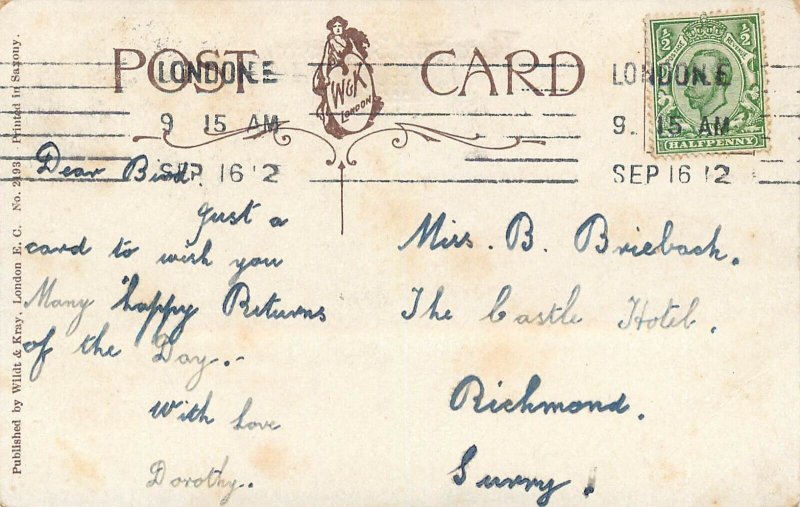 POST CARD
W&K
LONDON
LONDON.E
9 15 AM
SEP 16 12
LONDON.E
9. 15 AM
SEP 16 12
HALFPENNY
Dear
Just a
card to wish you
Many happy Returns
of the Day.-
With Love
Dorothy.
Miss. B. Briebach.
The Castle Hotel.
Richmond.
Surry.
Published by Wildt & Kray, London E. C. Printed in Saxony.